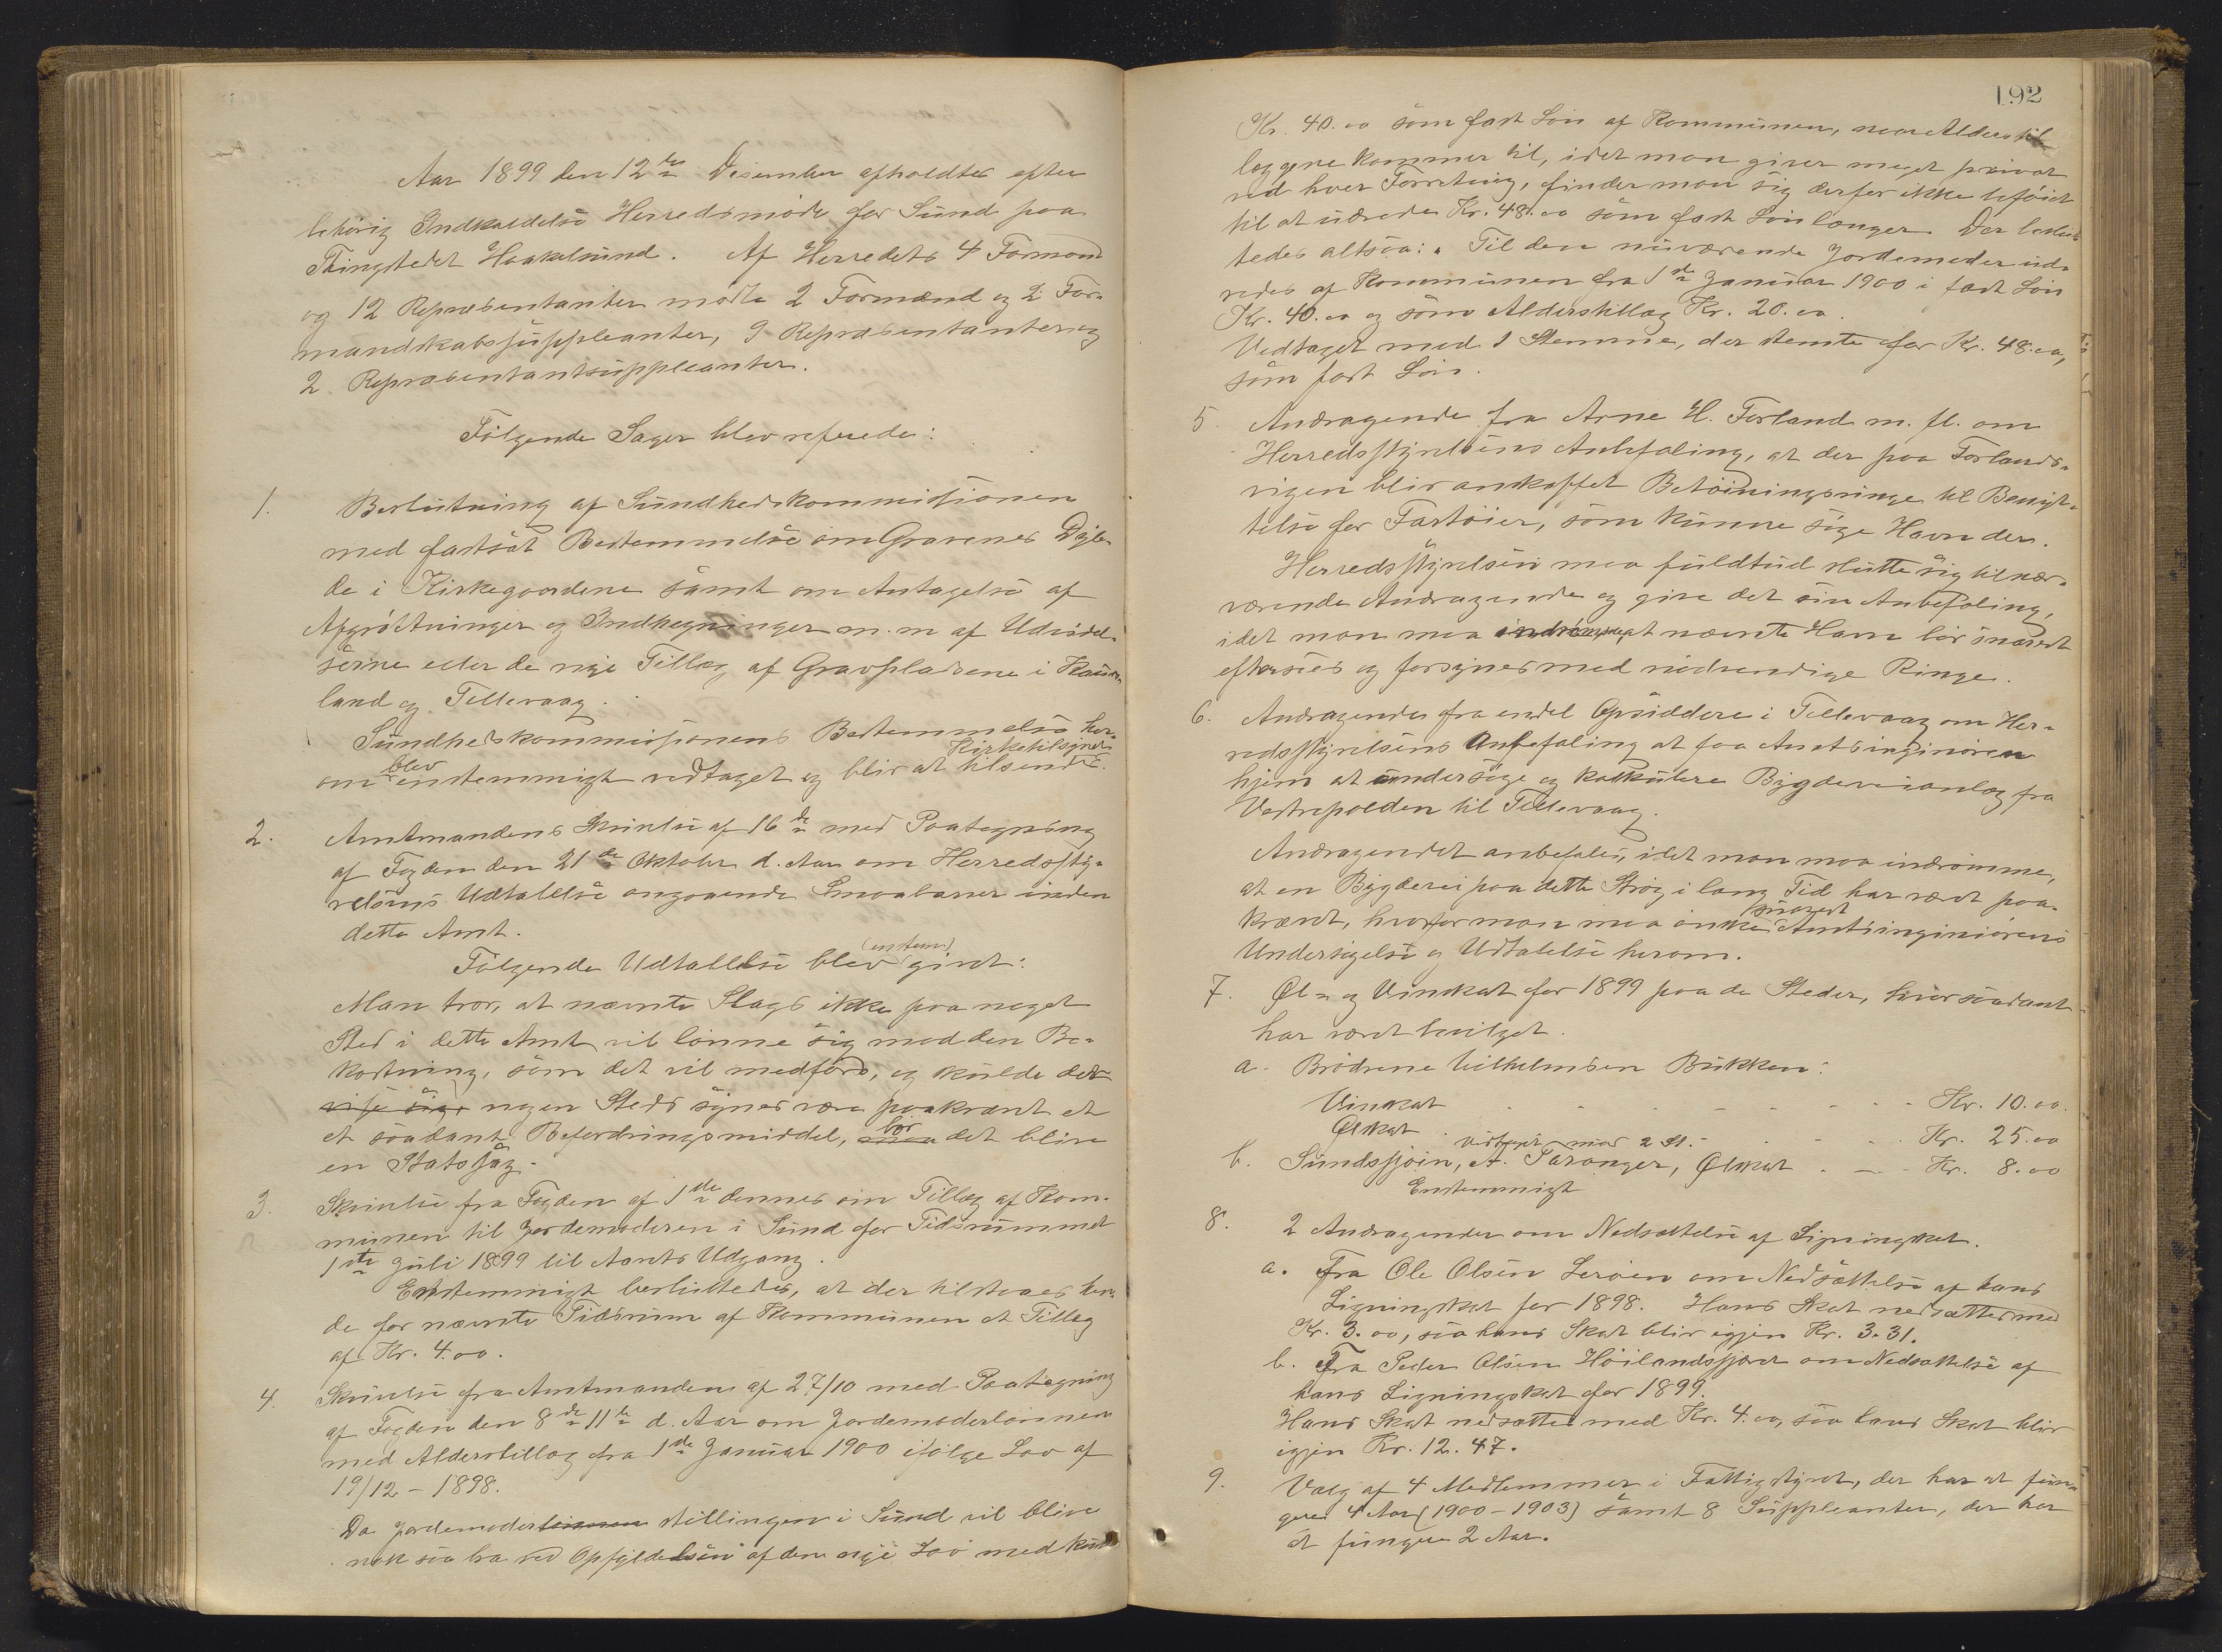 Aar 1899 den 12te Desember afholdtes efter
lovlig Indkaldelse Herredsmøde for Sund paa
Thingstedet Haakelsund. Af Herredets 4 Formænd
og 12 Repræsentanter mødte 2 Formænd og 2 For-
mandskabssuppleanter, 9 Repræsentanter og
2 Repræsentantsuppleanter.
Følgende Sager blev referede:
1. Beslutning af Sundhedskommissionen
med fastsat Bestemmelse om Gravenes Dyb-
de i Kirkegaardene samt om Antagelse af
Afgrøftninger og Indhegninger m. m af Udvidel-
serne eller de nye Tillæg af Gravpladsene i Kaus-
land og Tellevaag.
Sundhedskommissionens Bestemmelse her-
om blev enstemmigt vedtaget og blir at tilsende Kirketilsynet.
2. Amtmandens Skrivelse af 16de med Paategning
af Fogden den 21de Oktober d. Aar om Herredssty-
relsens Udtalelse angaaende Smaabaner inden
dette Amt.
Følgende Udtallelse blev (enstem) givet:
Man tror, at nævnte Slags ikke paa noget
Sted i dette Amt vil lønne sig med den Be-
kostning, som det vil medføre, og skulde det
vise sig, nogen Steds synes være paakrævet et
et saadant Befordringsmiddel, bør det blive
en Statssag.
3. Skrivelse fra Fogden af 1ste dennes om Tillæg af Kom-
munen til Jordemoderen i Sund for Tidsrummet
1ste Juli 1899 til Aarets Udgang.
Enstemmigt besluttedes, at der tilstaaes hen-
de for nævnte Tidsrum af Kommunen et Tillæg
af Kr. 4.00.
4. Skrivelse fra Amtmanden af 27/10 med Paategning
af Fogden den 8de 11te d. Aar om Jordemoderlønnen
med Alderstillæg fra 1ste Januar 1900 ifølge Lov af
19/12 - 1898.
Da Jordemoderlønnen stillingen i Sund vil blive
nok saa bra ved Opfyldelsen af den nye Lov med kun
192
Kr. 40.00 som fast Løn af Kommunen, naar Alderstil-
læggene kommer til, idet man giver meget privat
ved hver Forretning, finder man sig derfor ikke beføiet
til at udrede Kr. 48.00 som fast Løn længer. Der beslut-
tedes altsaa: Til den nuværende Jordemoder ud-
redes af Kommunen fra 1ste Januar 1900 i fast Løn
Kr. 40.00 og som Alderstillæg Kr. 20.00.
Vedtaget mod 1 Stemme, der stemte for Kr. 48.00,
som fast Løn.
5. Andragende fra Arne H. Forland m. fl. om
Herredsstyrelsens Anbefaling, at der paa Forlands-
vigen blir anskaffet Betøiningsringe til Benyt-
telse for Fartøier, som kunne søge Havn der.
Herredsstyrelsen maa fuldtud slutte sig til nær-
værende Andragende og give det sin Anbefaling,
idet man maa indrømme, at nævnte Havn bør snarest
eftersees og forsynes med nødvendige Ringe.
6. Andragende fra endel Opsiddere i Tellevaag om Her-
redsstyrelsens Anbefaling at faa Amtsinginiøren
hjem at undersøge og kalkulere Bygdeveianlæg fra
Vestrepolden til Tellevaag.
Andragendet anbefales, idet man maa indrømme,
at en Bygdevei paa dette Strøg i lang Tid har været paa-
krævet, hvorfor man maa ønske snarest Amtsinginiørens
Undersøgelse og Udtalelse herom.
7. Øl- og Vinskat for 1899 paa de Steder, hvor saadant
har været bevilget.
a. Brødrene Wilhelmsen Bukken:
Vinskat - - - - - - - Kr. 10.00.
Ølskat - - - - Kr. 25.00
vedtaget mod 2 St.
b. Sundssjøen, A. Taranger, Ølskat - - - Kr. 8.00
Enstemmigt
8. 2 Andragender om Nedsættelse af Ligningskat.
a. Fra Ole Olsen Lerøen om Nedsættelse af hans
Ligningskat for 1898. Hans Skat nedsættes med
Kr. 3.00, saa hans Skat blir igjen Kr. 3.31.
b. Fra Peder Olsen Høilandssjøen om Nedsættelse af
hans Ligningskat for 1899.
Hans Skat nedsættes med Kr. 4.00, saa hans Skat blir
igjen Kr. 12.47.
9. Valg af 4 Medlemmer i Fattigstyret, der har at fun-
gere 4 Aar (1900-1903) samt 8 Suppleanter, der har
at fungere 2 Aar.